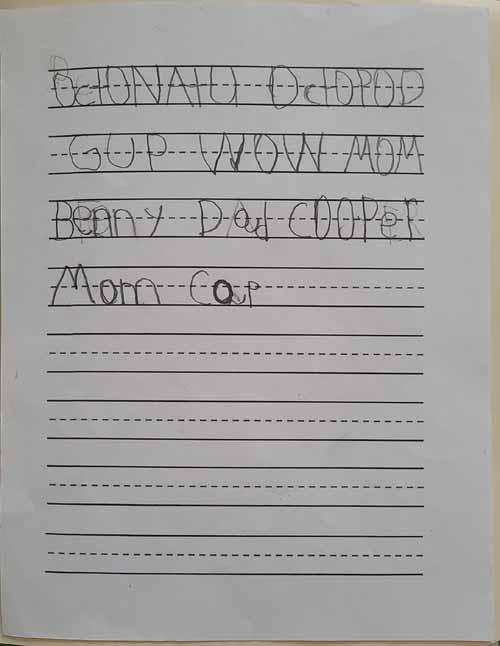 OctONAtU OctOPOD
GUP WOW MOM
Benny Dad COOPeR
Mom Cap